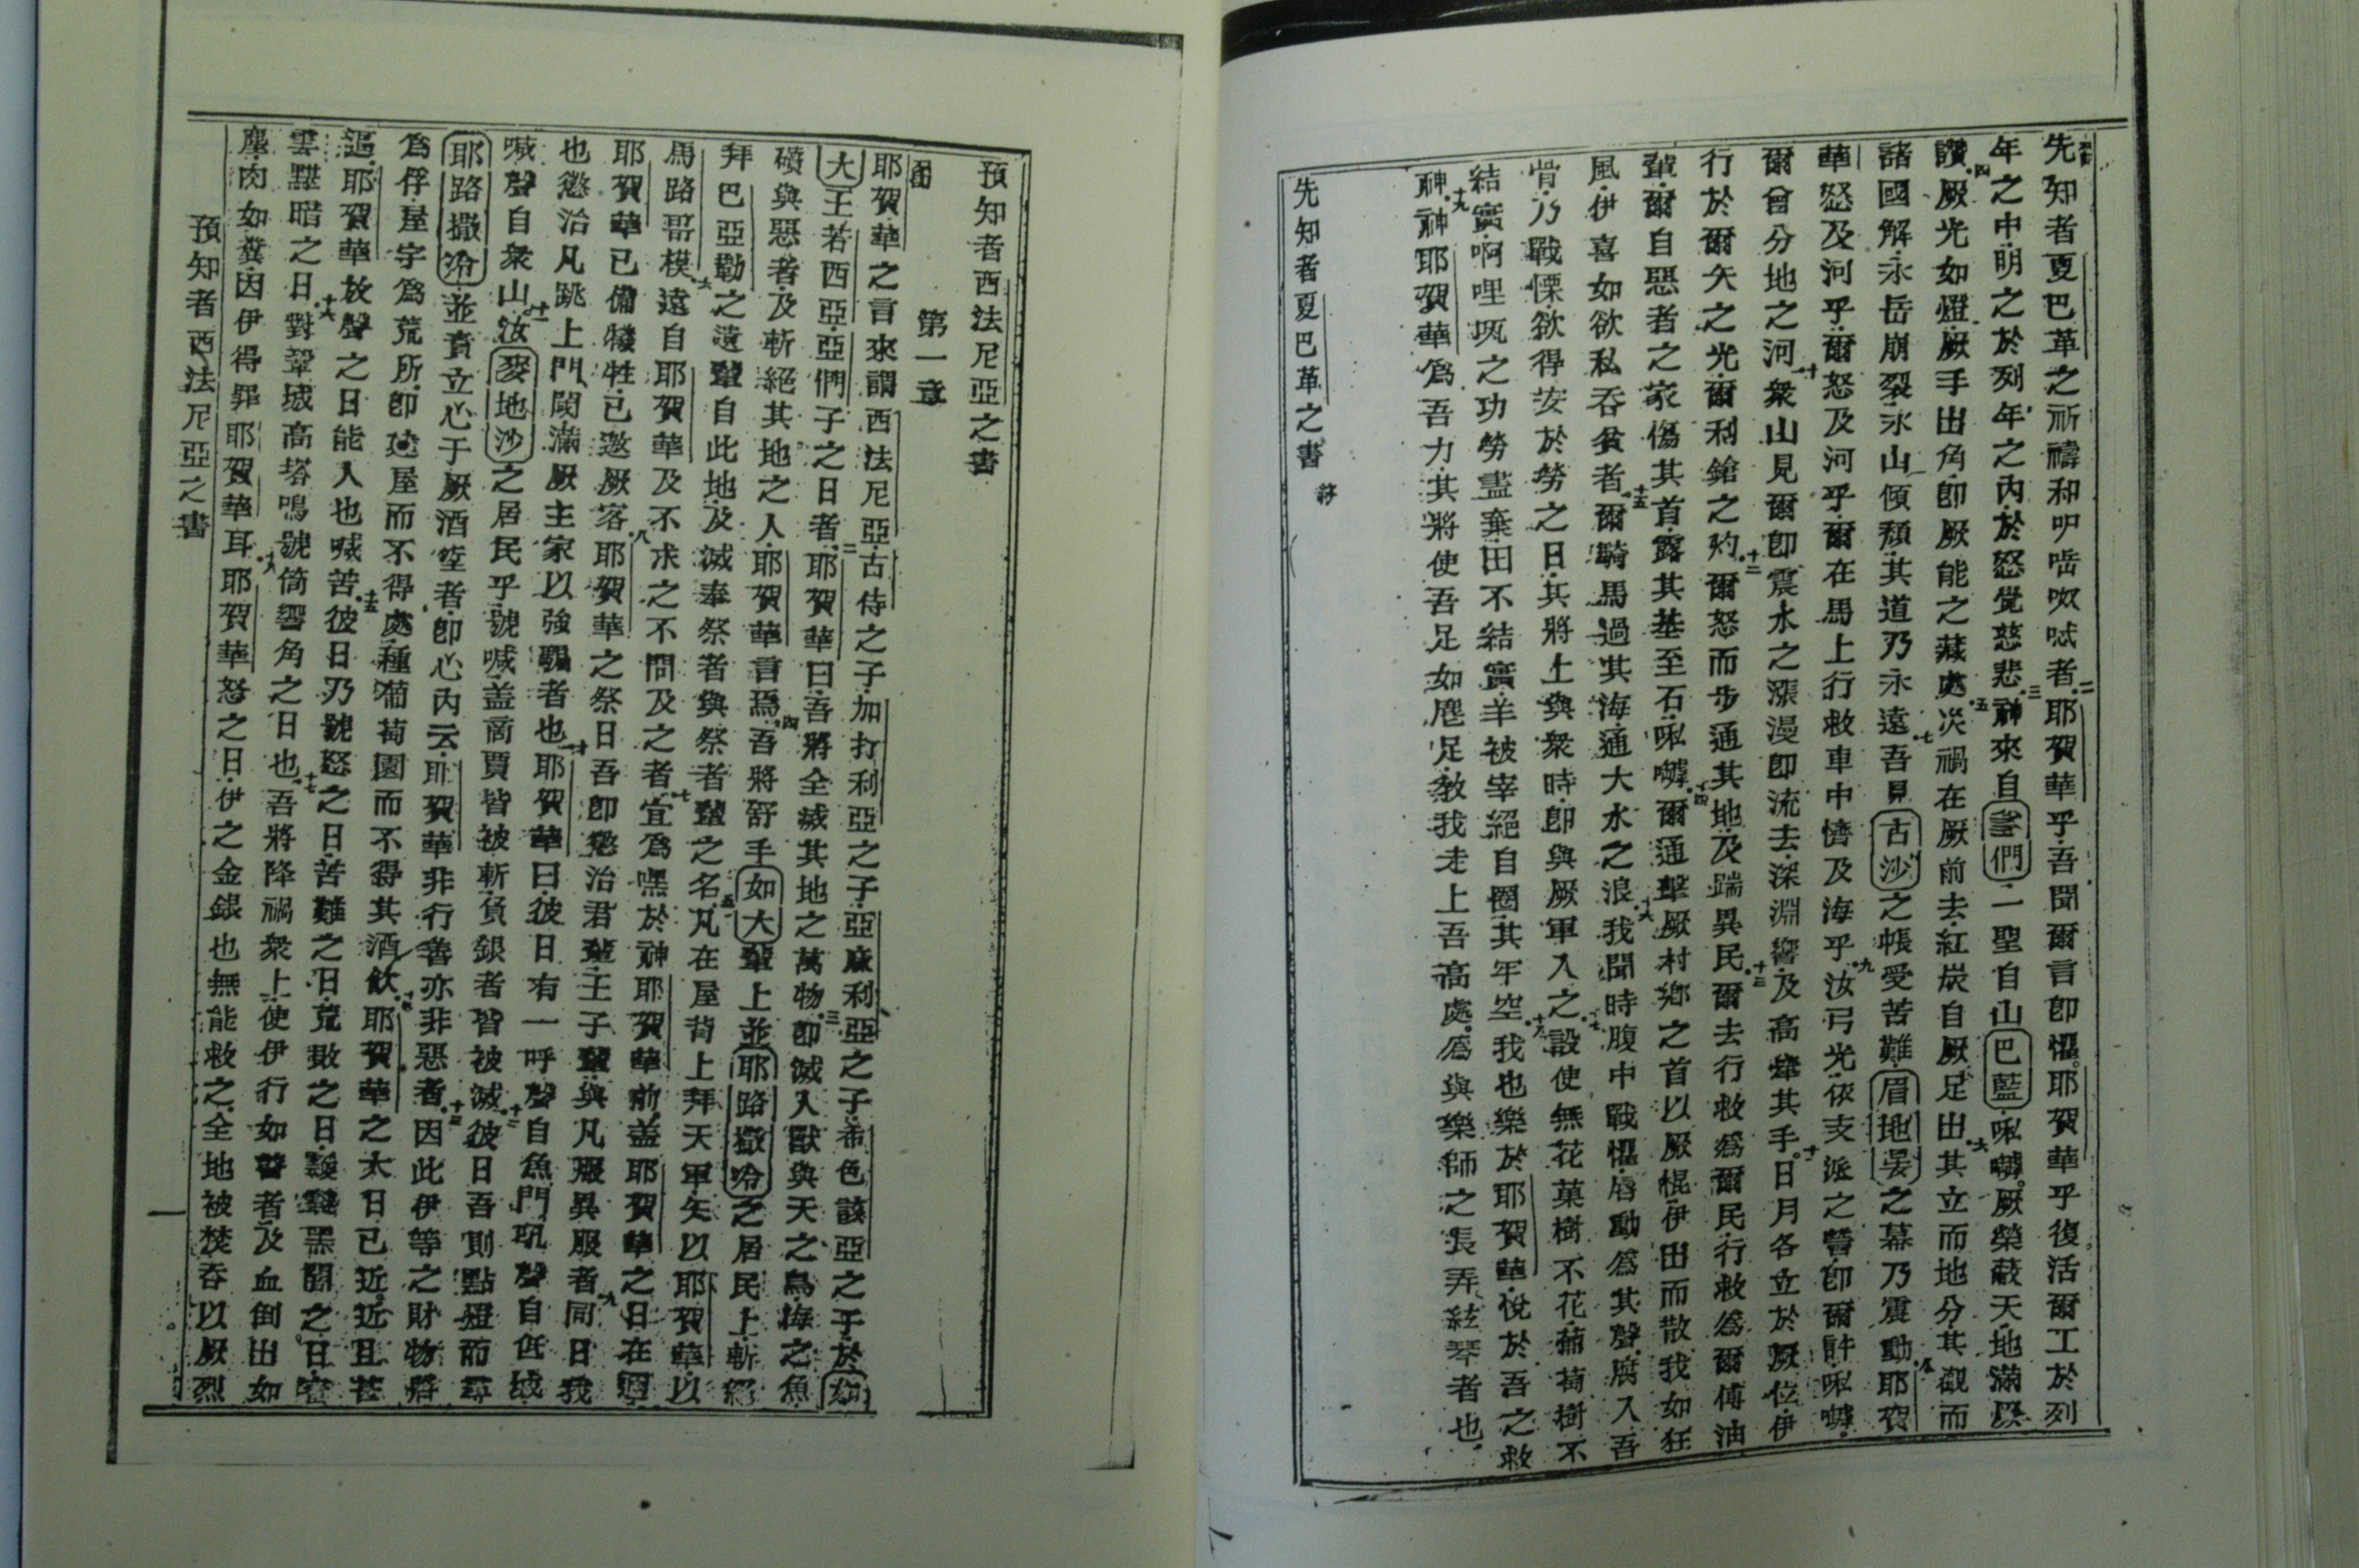 先知者夏巴革之祈禱和者二耶賀華乎吾聞爾言卽懼耶賀華乎復活爾工於列
年之中明之於列年之內於怒覺慈悲三神來自們一聖自山巴藍厥榮蔽天地滿厥
讚四厥光如燈厥手出角卽厥能之藏處五災禍在厥前去紅炭自厥足出六其立而地分其觀而
諸國解永岳崩裂永山傾頹其道乃永遠七吾見古沙之帳受苦難眉地晏之幕乃震動八耶賀
華怒及河乎爾怒及河乎爾在馬上行救車中儕及海乎九汝弓光依支派之誓卽爾許
爾曾分地之河十衆山見爾卽震水之漲漫卽流去深淵響及高舉其手十一日月各立於厥位伊
行於爾矢之光爾利鎗之灼十二爾怒而步通其地及踹異民十三爾去行救爲爾民行救爲爾傅油
輩爾自惡者之家傷其首露其基至石十四爾通擊厥村鄕之首以厥棍伊出而散我如狂
風伊喜如欲私吞貧者十五爾騎馬過其海通大水之浪十六我聞時腹中戰懼唇動爲其聲腐入吾
骨乃戰慄欲得安於勞之日其將上與衆時卽與厥軍入之十七設使無花菓樹不花葡萄樹不
結實啊哩之功勞盡棄田不結實羊被宰絕自圈其牢空十八我也樂於耶賀華悅於吾之救
神十九神耶賀華爲吾力其將使吾足如麀足敎我走上吾高處爲與樂師之長弄絃琴者也
先知者夏巴革之書終
預知者西法尼亞之書
第一章
耶賀華之言來謂西法尼亞古侍之子加打利亞之子亞麻利亞之子希色該亞之子於如
大王若西亞亞們子之日者二耶賀華曰吾將全滅其地之萬物三卽滅人獸與天之鳥海之魚
礩與惡者及斬絕其地之人耶賀華言焉四吾將舒手如大輩上並耶路撒冷之居民上斬絕
拜巴亞勒之遺輩自此地及滅奉祭者與祭者輩之名五凡在屋背上拜天軍矢以耶賀華以
馬路哥模六遠自耶賀華及不求之不問及之者七宜爲嘿於神耶賀華前蓋耶賀華之日在邇
耶賀華已備犧牲已邀厥客八耶賀華之祭日吾卽懲治君輩王子輩與凡服異服者九同日我
也懲治凡跳上門閾滿厥主家以強騙者也十耶賀華曰彼日有一呼聲自魚門吼聲自低城
喊聲自衆山十一汝麥地沙之居民乎號喊蓋商賈皆被斬負銀者皆被滅十二彼日吾則點燈而尋
耶路撒冷並責立心于厥酒堂者卽心內云耶賀華非行善亦非惡者十三因此伊等之財物將
爲俘屋宇爲荒所卽建屋而不得處種葡萄園而不得其酒飮十四耶賀華之大日已近近且甚
逼耶賀華放聲之日能人也喊苦十五彼日乃號怒之日苦難之日荒敗之日黑闇之日密
雲黯暗之日十六對鞏城高塔鳴號筒響角之日也十七吾將降禍衆上使伊行如瞽者及血倒出如
塵肉如糞因伊得罪耶賀華耳十八耶賀華怒之日伊之金銀也無能救之全地被焚吞以厥烈
預知者西法尼亞之書
一